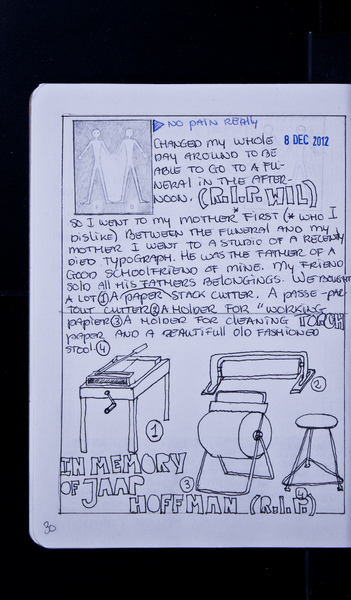 NO PAIN REALLY
CHANGED MY WHOLE 8 DEC 2012
DAY AROUND TO BE
ABLE TO GO TO A FU-
NERAL IN THE AFTER-
NOON. (R.I.P. WIL)
SO I WENT TO MY MOTHER* FIRST (* WHO I
DISLIKE) BETWEEN THE FUNERAL AND MY
MOTHER I WENT TO A STUDIO OF A RECENTLY
DIED TYPOGRAPH. HE WAS THE FATHER OF A
GOOD SCHOOLFRIEND OF MINE. MY FRIEND
SOLD ALL HIS FATHERS BELONGINGS. WE BOUGHT
A LOT ① A PAPER STACK CUTTER, A PASSE-PAR-
TOUT CUTTER ② A HOLDER FOR "WORKING
PAPIER ③ A HOLDER FOR CLEANING TORCH
PAPER AND A BEAUTIFULL OLD FASHIONED
STOOL. ④
①
②
③
④
IN MEMORY
OF JAAP
HOFFMAN (R.I.P.)
30